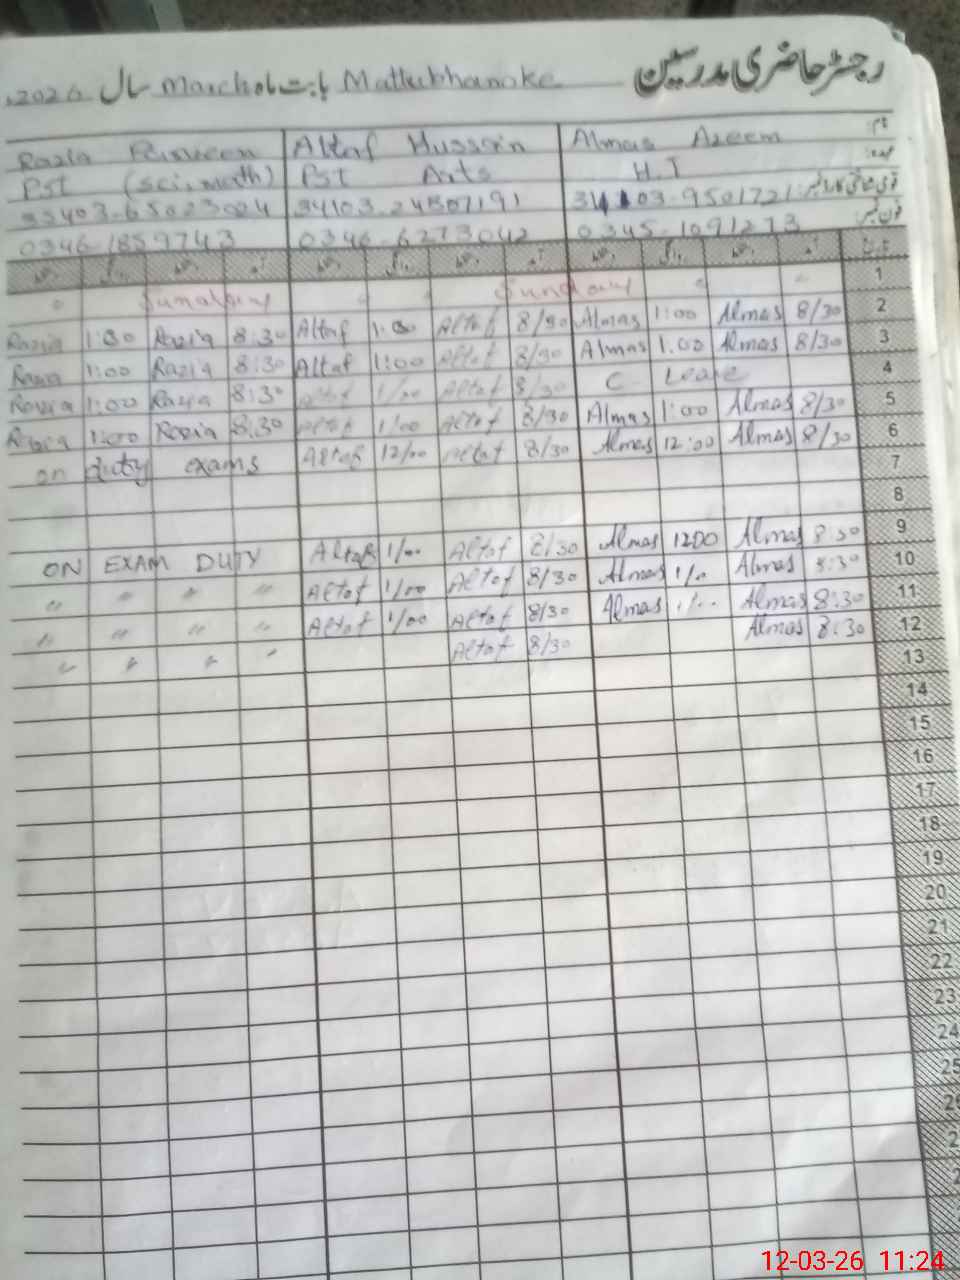 رجسٹر حاضری مدرسین Mattubhanoke بابت ماہ March سال 2026
نام: Almas Azeem Altaf Hussain Razia Parveen
عہدہ: H.T PST Arts PST (sci, math)
قومی شناختی کارڈ نمبر: 34103-9501721 34103-24807191 35403-65023024
فون نمبر: 0345-1091273 0346-6273042 0346-1859743
1 Sunday Sunday
2 Razia 1:30 Razia 8:30 Altaf 1:00 Altaf 8/30 Almas 1:00 Almas 8/30
3 Razia 1:00 Razia 8:30 Altaf 1:00 Altaf 8/30 Almas 1:00 Almas 8/30
4 Razia 1:00 Razia 8:30 Altaf 1/00 Altaf 8/30 C. Leave
5 Razia 1:00 Razia 8:30 Altaf 1/00 Altaf 8/30 Almas 1:00 Almas 8/30
6 on duty exams Altaf 12/00 Altaf 8/30 Almas 12:00 Almas 8/30
7
8
9 ON EXAM DUTY Altaf 1/00 Altaf 8/30 Almas 1200 Almas 8:30
10 " " " " Altaf 1/00 Altaf 8/30 Almas 1/0 Almas 8:30
11 " " " " Altaf 1/00 Altaf 8/30 Almas Almas 8:30
12 " " " " Altaf 8/30 Almas 8:30
13
14
15
16
17
18
19
20
21
22
23
24
25
12-03-26 11:24